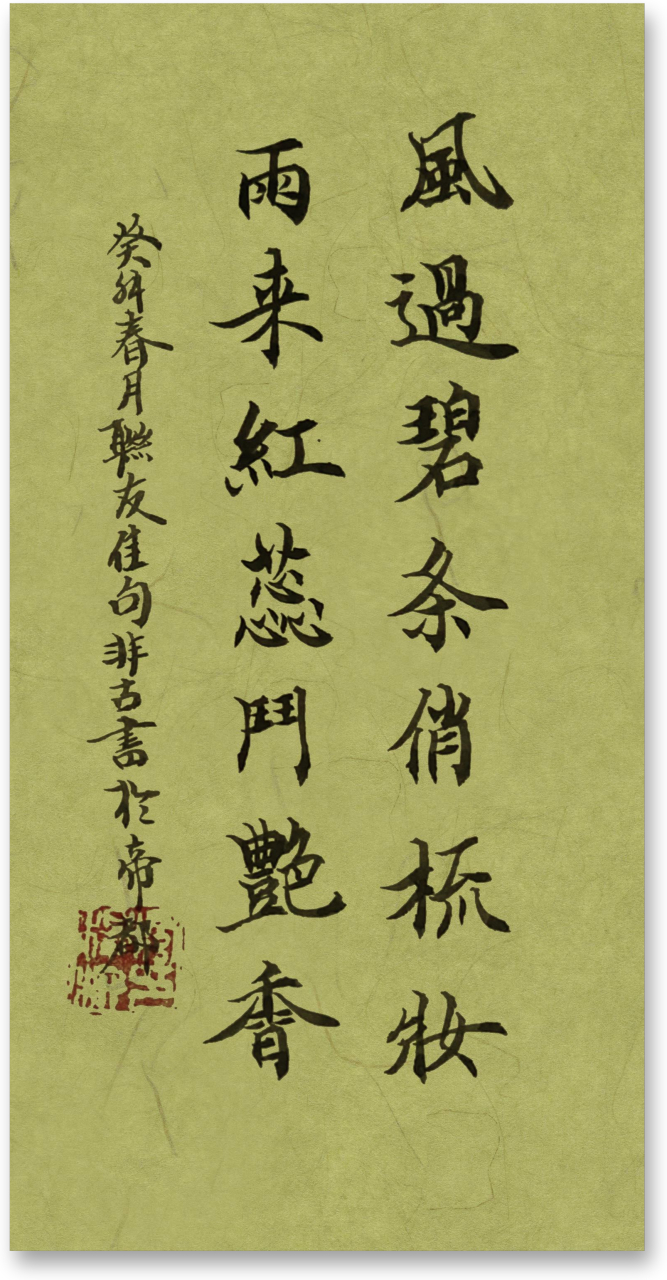 風過碧条俏梳妝
雨来紅蕊鬥艷香
癸卯春月聯友佳句非古書於帝都